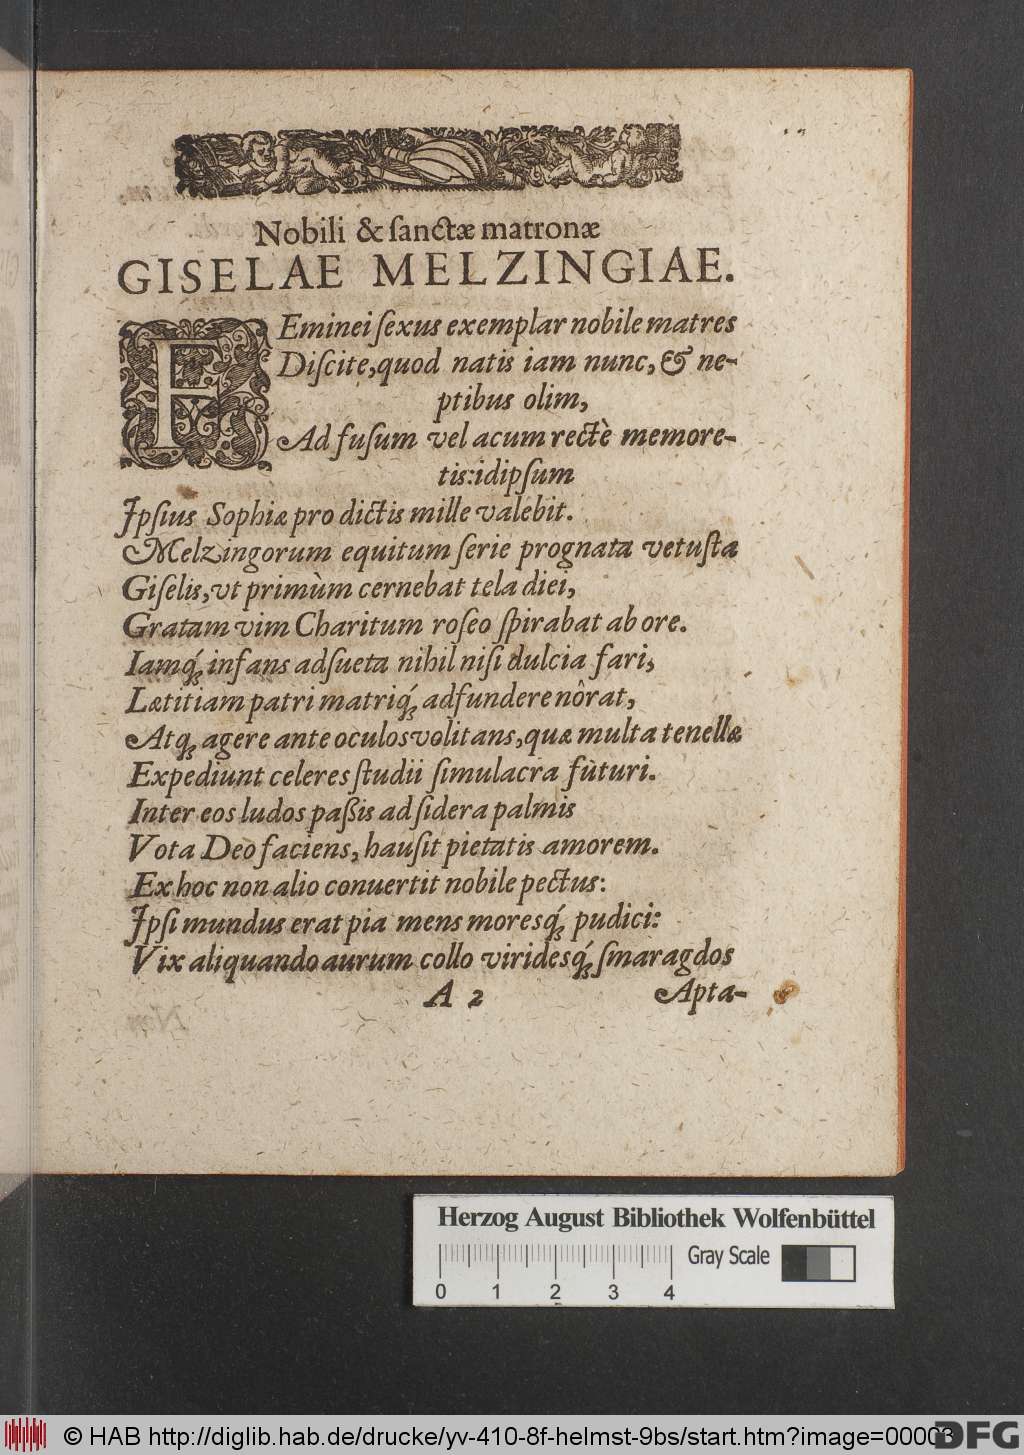 Nobili & ſanctæ matronæ
GISELAE MELZINGIAE.
FEminei ſexus exemplar nobile matres
Diſcite, quod natis iam nunc, & ne-
ptibus olim,
Ad fuſum vel acum rectè memore-
tis: idipſum
Ipſius Sophiæ pro dictis mille valebit.
Melzingorum equitum ſerie prognata vetuſta
Giſelis, vt primùm cernebat tela diei,
Gratam vim Charitum roſeo ſpirabat ab ore.
Iamq́; infans adſueta nihil niſi dulcia fari,
Lætitiam patri matriq́; adfundere nôrat,
Atq; agere ante oculos volitans, quæ multa tenellæ
Expediunt celeres ſtudii ſimulacra fùturi.
Inter eos ludos paßis ad ſidera palmis
Vota Deo faciens, hauſit pietatis amorem.
Ex hoc non alio conuertit nobile pectus:
Ipſi mundus erat pia mens moresq́; pudici:
Vix aliquando aurum collo viridesq́; ſmaragdos
A 2 Apta-
Herzog August Bibliothek Wolfenbüttel
Gray Scale
0 1 2 3 4
© HAB http://diglib.hab.de/drucke/yv-410-8f-helmst-9bs/start.htm?image=00003
DFG